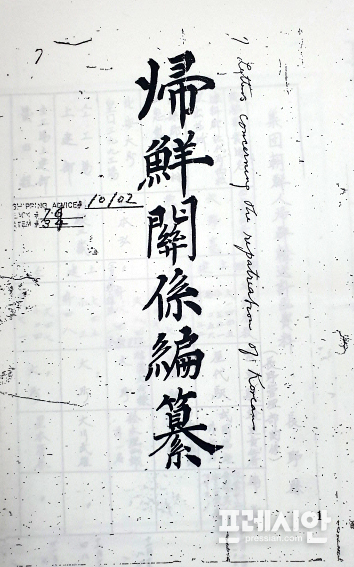 7
帰鮮關係編纂
7 Letters concerning the repatriation of Korean
SHIPPING ADVICE# 10/02
76
ITEM # 34
1
프레시안
pressian.com